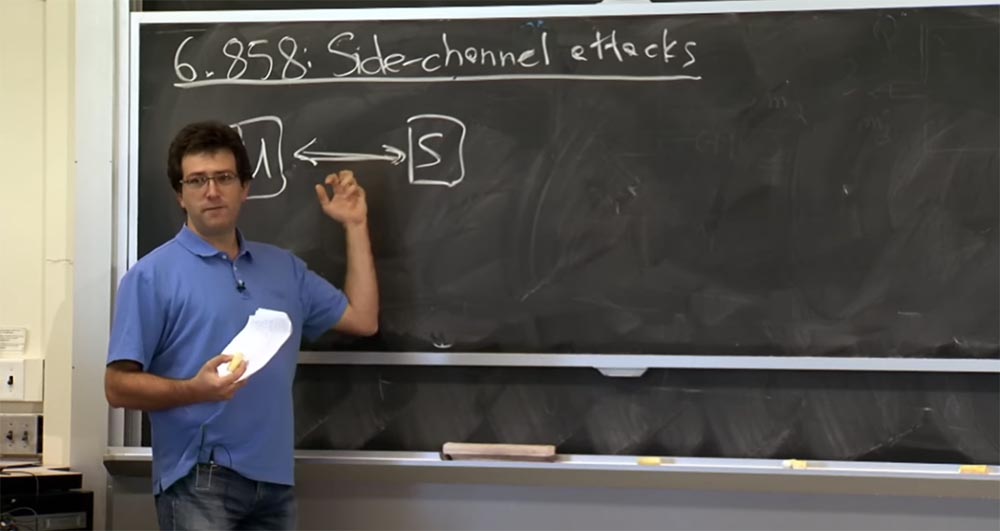 6.858: Side-channel attacks
U S